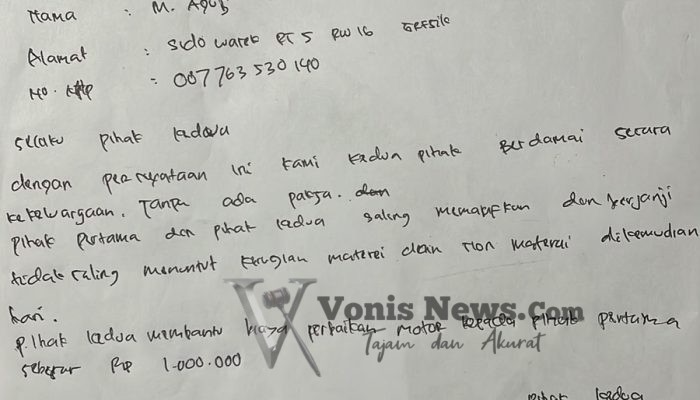 Nama : M. Agus
Alamat : Sido warek RT 5 RW 16 Gresik
No. Ktp : 007763530140
selaku pihak kedua
dengan pernyataan ini kami kedua pihak Berdamai secara
kekeluargaan. Tanpa ada paksa. dan
pihak pertama dan pihak kedua saling memaafkan dan berjanji
tidak saling menuntut kerugian materei dan non materai dikemudian
hari.
pihak kedua membantu biaya perbaikan motor kepada pihak pertama
sebesar Rp 1.000.000
Vonis News.Com
Tajam dan Akurat
pihak kedua